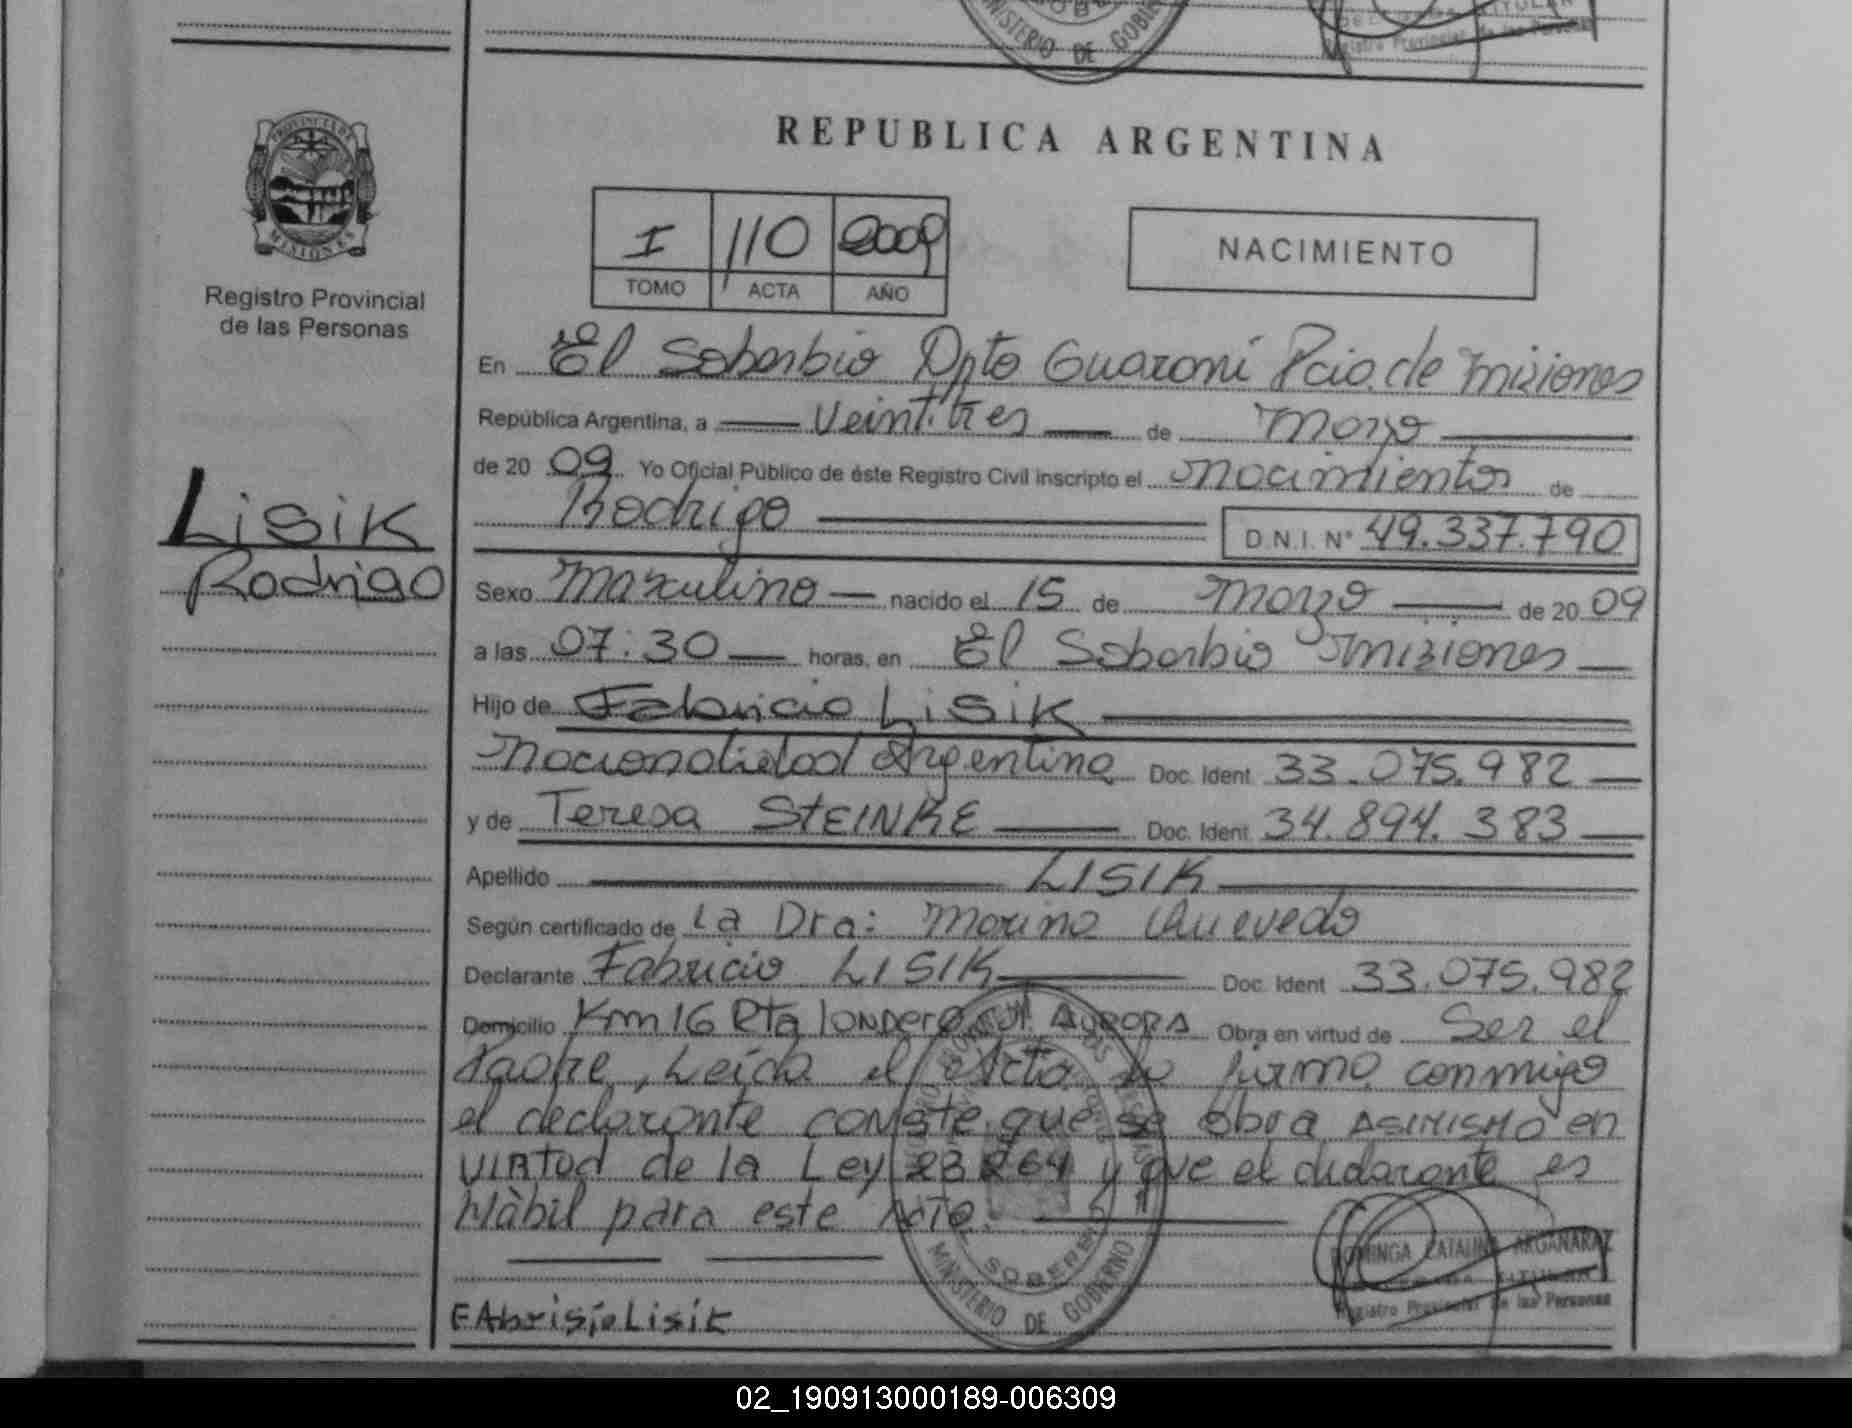 MINISTERIO DE GOBIERNO
Registro Provincial de las Personas
PROVINCIA DE
MISIONES
Registro Provincial
de las Personas
REPUBLICA ARGENTINA
I 110 2009
TOMO ACTA AÑO
NACIMIENTO
En El Soberbio Dpto Guaraní Pcia. de Misiones
República Argentina, a Veintitres de Marzo
de 2009 Yo Oficial Público de éste Registro Civil inscripto el Nacimiento de
Rodrigo D.N.I. N° 49.337.790
Lisik
Rodrigo
Sexo Masculino nacido el 15 de Marzo de 2009
a las 07:30 horas, en El Soberbio Misiones
Hijo de Fabricio Lisik
Nacionalidad Argentina Doc. Ident. 33.075.982
y de Teresa STEINKE Doc. Ident. 34.894.383
Apellido LISIK
Según certificado de La Dra: Marina Quevedo
Declarante Fabricio LISIK Doc. Ident. 33.075.982
Domicilio Km 16 Rta londero AURORA Obra en virtud de Ser el
Padre, Leída el Acta la firma conmigo
el declarante conste que se obra ASIMISMO en
VIRTUD de la Ley 23264 y que el declarante es
Hàbil para este Acto.
DOMINGA CATALINA ARGAÑARAZ
TITULAR
Registro Provincial de las Personas
SOBERBIO
MINISTERIO DE GOBIERNO
FAbrisio Lisik
02_190913000189-006309